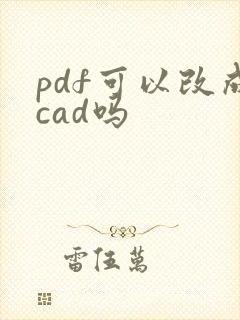 pdf可以改成
cad吗
雷伍萬